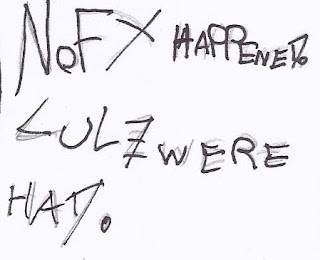 NOFX HAPPENED.
LULZ WERE
HAD.